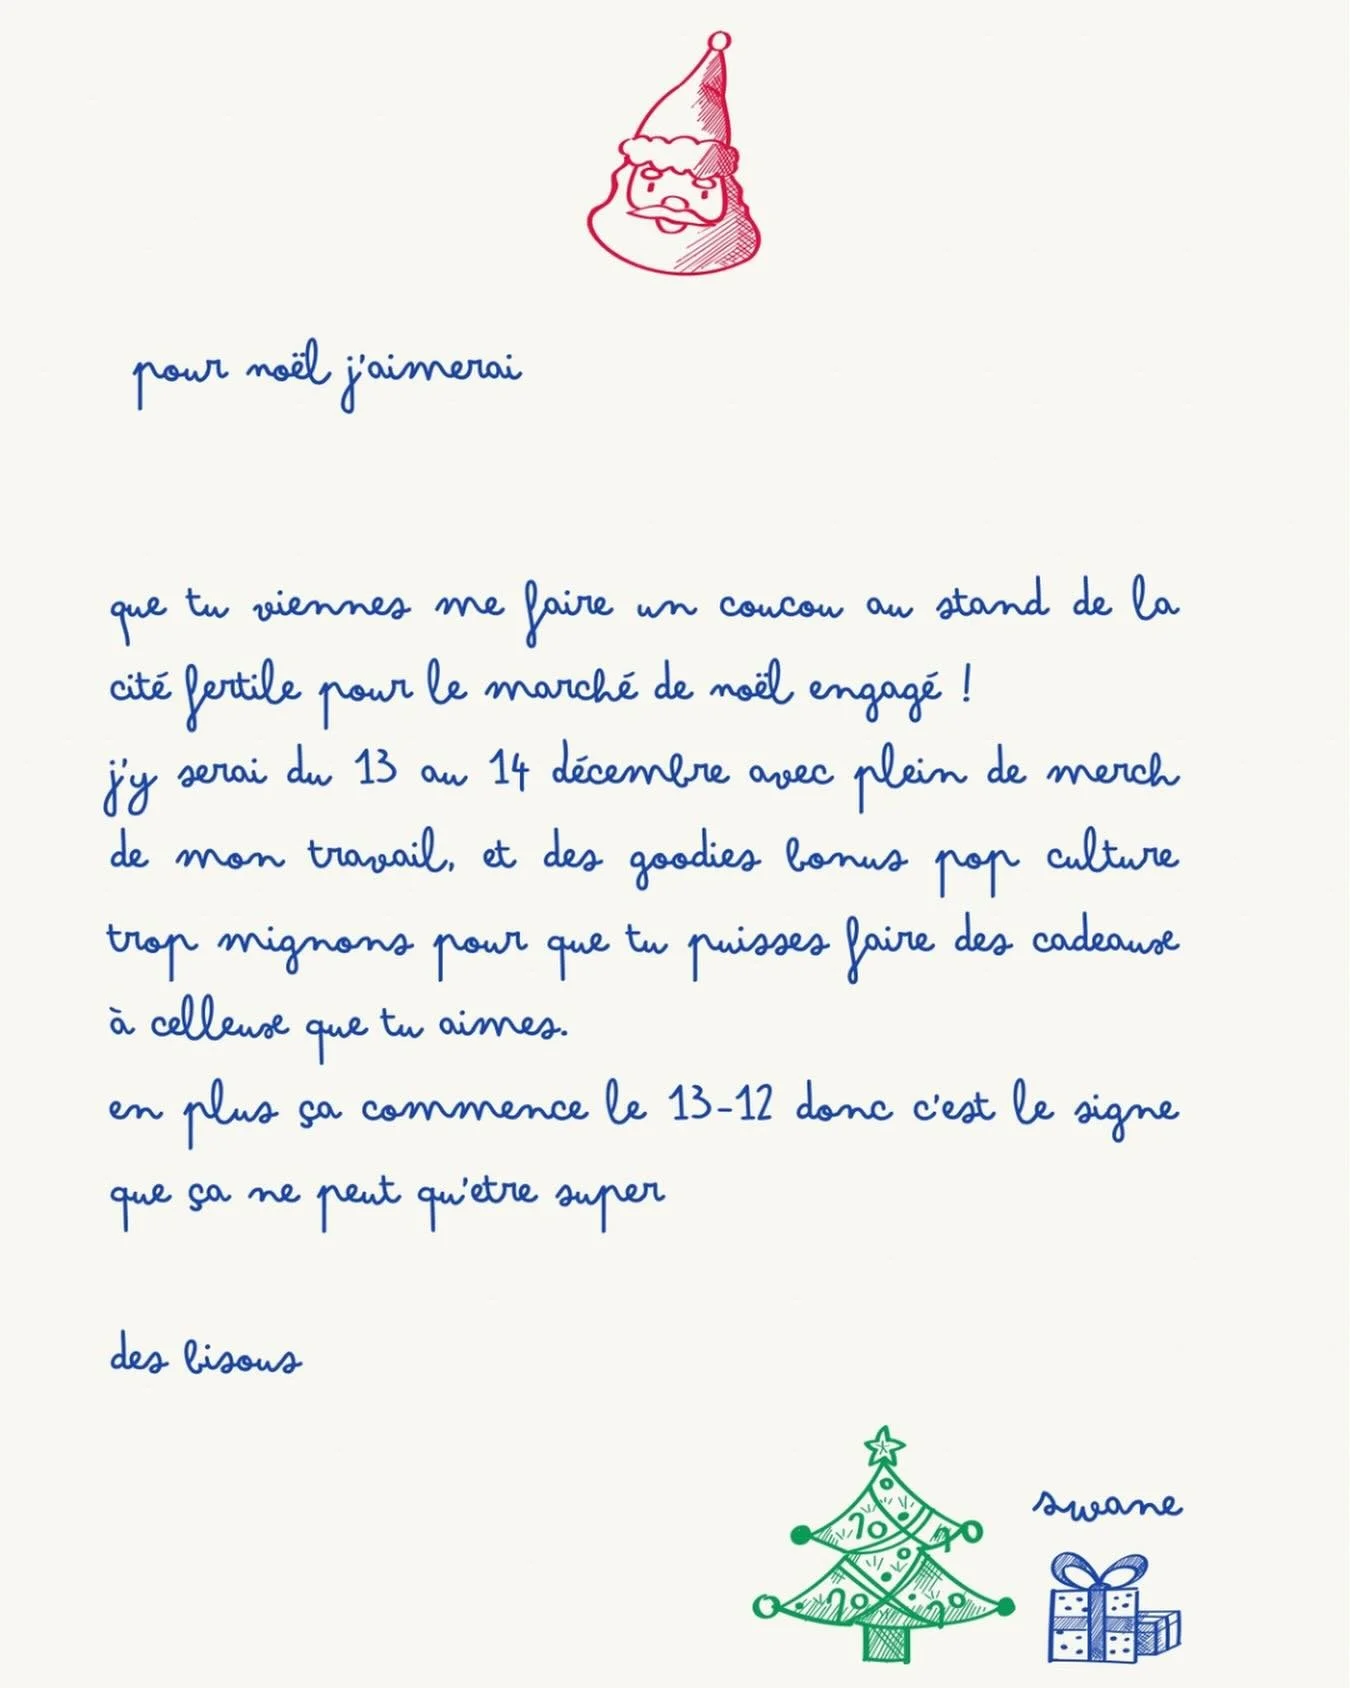 pour noël j'aimerai
que tu viennes me faire un coucou au stand de la
cité fertile pour le marché de noël engagé !
j'y serai du 13 au 14 décembre avec plein de merch
de mon travail, et des goodies bonus pop culture
trop mignons pour que tu puisses faire des cadeaux
à celleux que tu aimes.
en plus ça commence le 13-12 donc c'est le signe
que ça ne peut qu'etre super
des bisous
swane